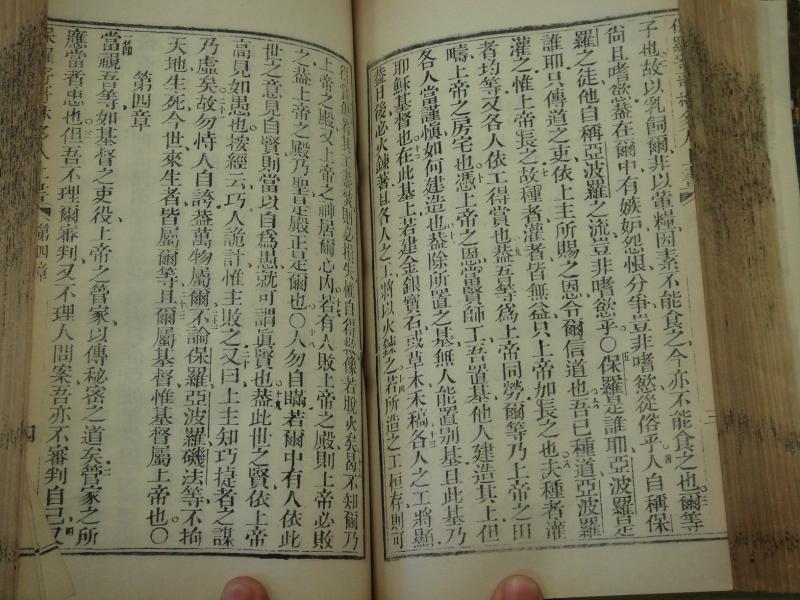 子也故以乳飼爾非以葷糧因素不能食之今亦不能食之也爾等
尚且嗜慾蓋在爾中有嫉妒怨恨分爭豈非嗜慾從俗乎人自稱保
羅之徒他自稱亞波羅之流豈非嗜慾乎〇保羅是誰耶亞波羅是
誰耶只傳道之吏依上主所賜之恩令爾信道也吾已種道亞波羅
灌之惟上帝長之故種者灌者皆無益只上帝加長之也夫種者灌
者均等又各人依工得賞也蓋吾等為上帝同勞爾等乃上帝之田
疇上帝之房宅也憑上帝之恩當賢師工吾置基他人建造其上但
各人當謹慎如何建造也蓋除所置之基無人能置別基且此基乃
耶穌基督也在此基上若建金銀寶石或草木禾稿各人之工將顯
蓋日後必火鍊著且各人之工將以火鍊之若所造之工恒存則可
上帝之殿又上帝之神居爾心內若有人敗上帝之殿則上帝必敗
之蓋上帝之殿乃聖是殿正是爾也〇人勿自瞞若爾中有人依此
世之意見自賢則當以自為愚就可謂眞賢也蓋此世之賢依上帝
高見如愚也按經云巧人詭計惟主敗之又曰上主知巧捷者之謀
乃虛矣故勿恃人自誇蓋萬物屬爾不論保羅亞波羅磯法等不拘
天地生死今世來生者皆屬爾等且爾屬基督惟基督屬上帝也〇
第四章
當視吾等如基督之吏役上帝之管家以傳秘密之道矣管家之所
應當者忠也但吾不理爾審判又不理人問案吾亦不審判自己又
第四章